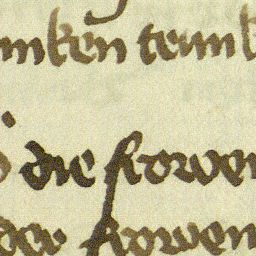 nken trunk
die frowen
der frowen